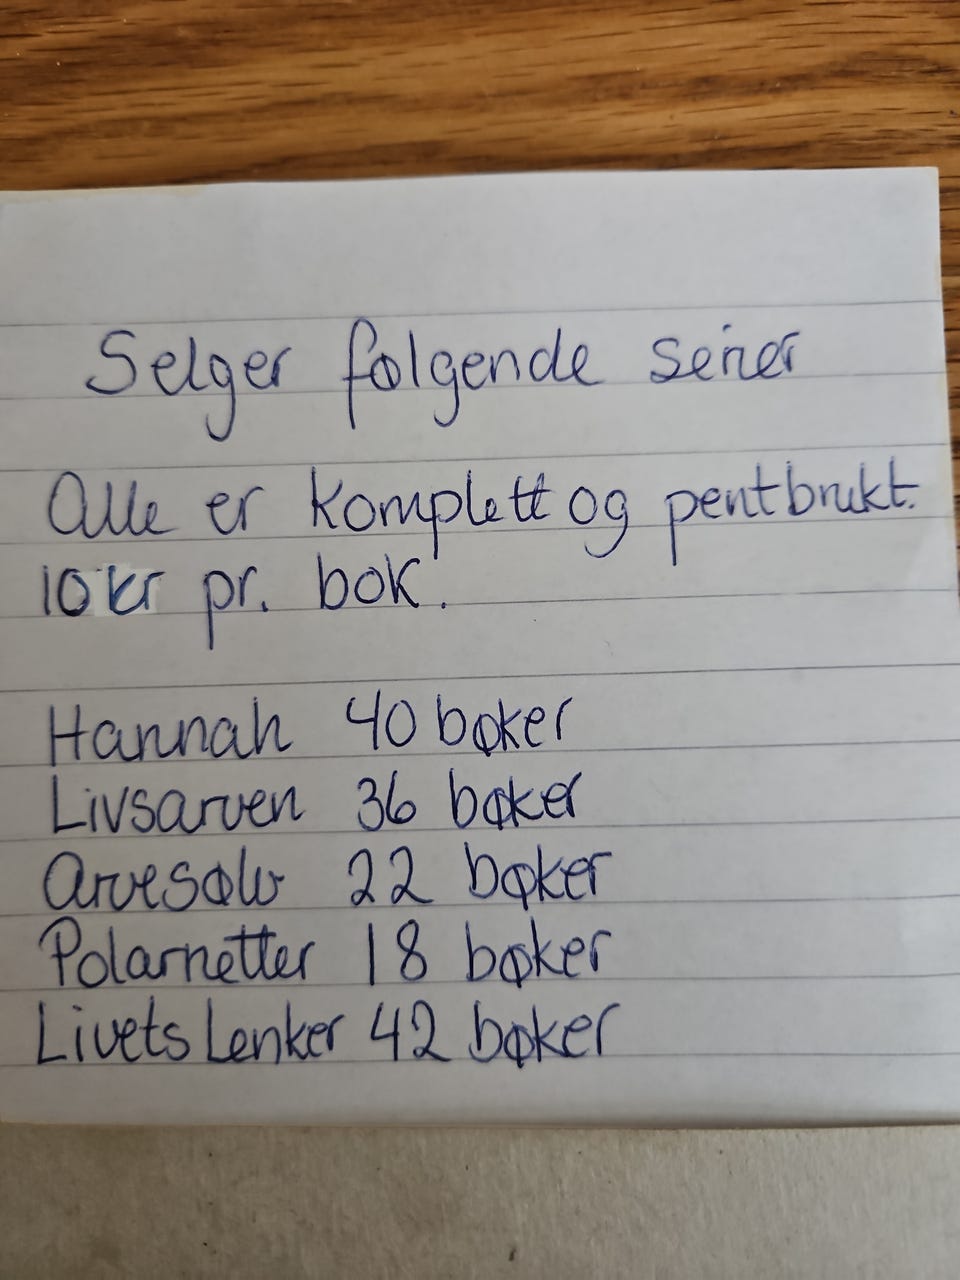 Selger følgende serier
Alle er komplett og pent brukt.
10 kr pr. bok.
Hannah 40 bøker
Livsarven 36 bøker
Arvesølv 22 bøker
Polarnetter 18 bøker
Livets Lenker 42 bøker